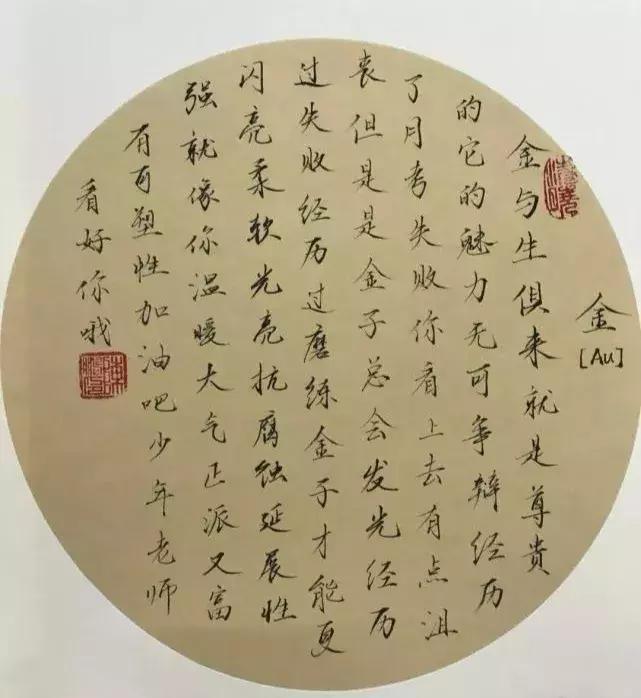 金
[Au]
金与生俱来就是尊贵
的它的魅力无可争辩经历
了月考失败你看上去有点沮
丧但是是金子总会发光经历
过失败经历过磨练金子才能更
闪亮柔软光亮抗腐蚀延展性
强就像你温暖大气正派又富
有可塑性加油吧少年老师
看好你哦